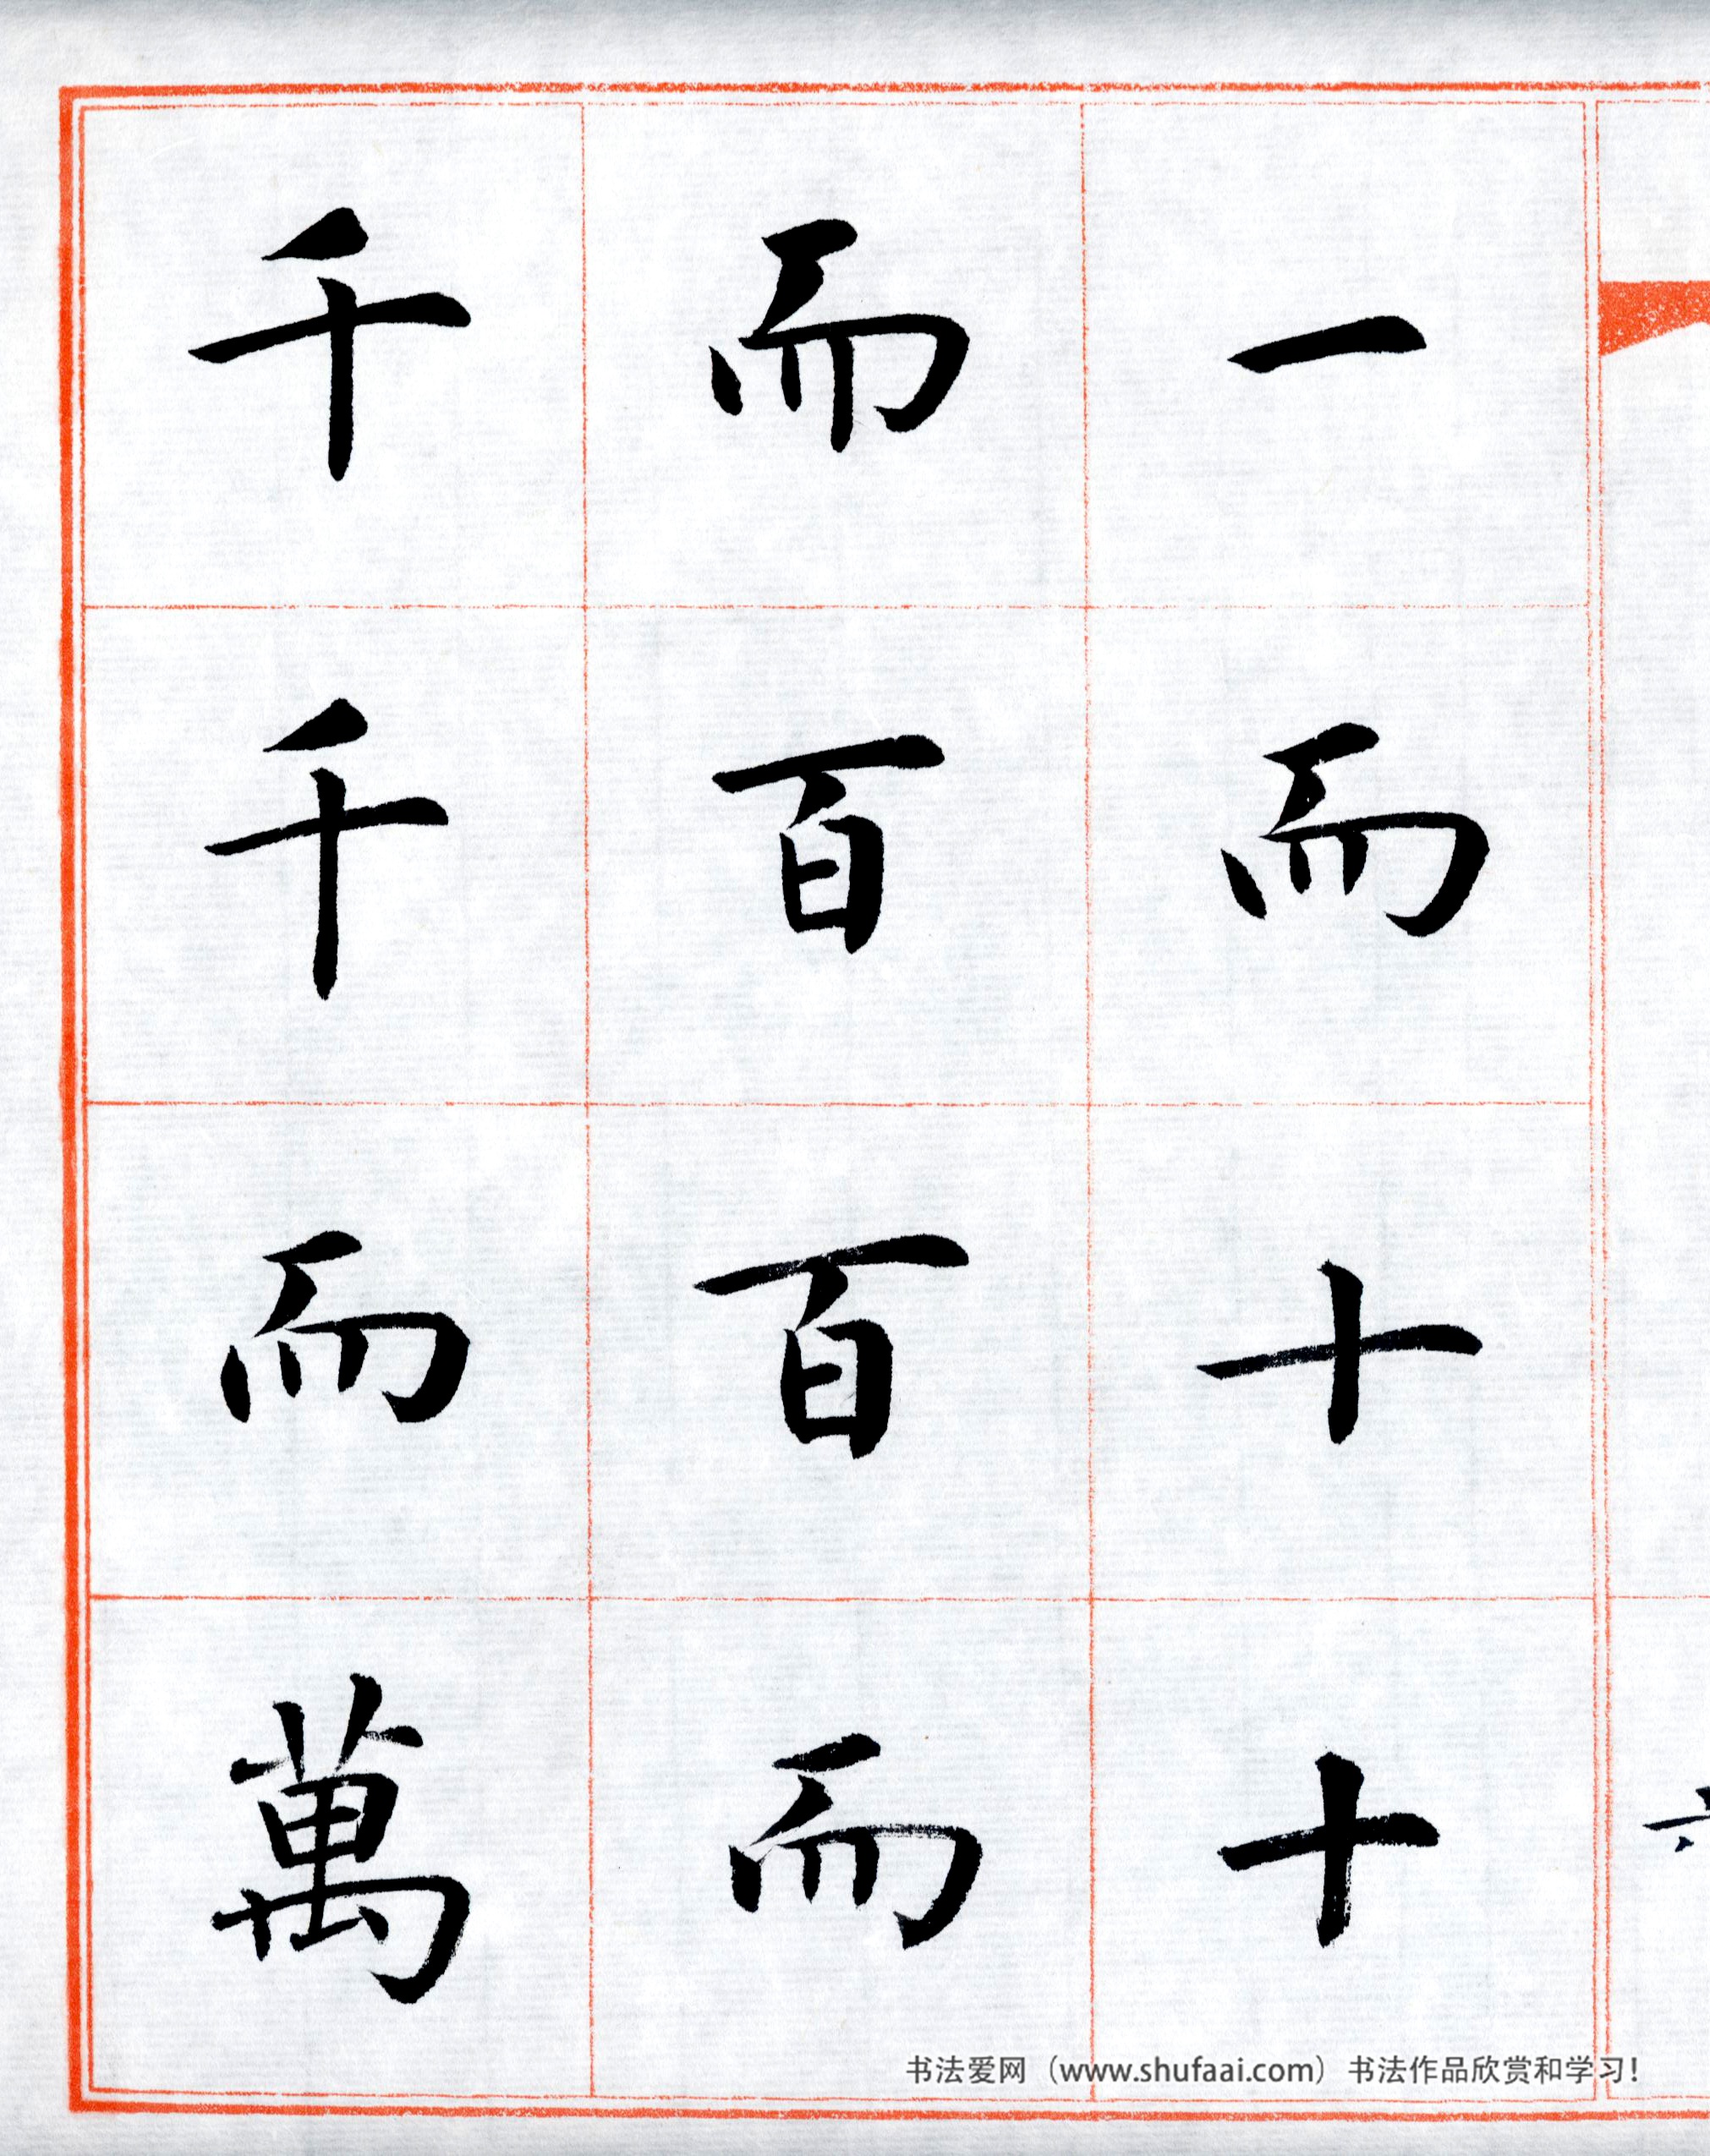 一而十十
而百百而
千千而萬
书法爱网（www.shufaai.com）书法作品欣赏和学习！